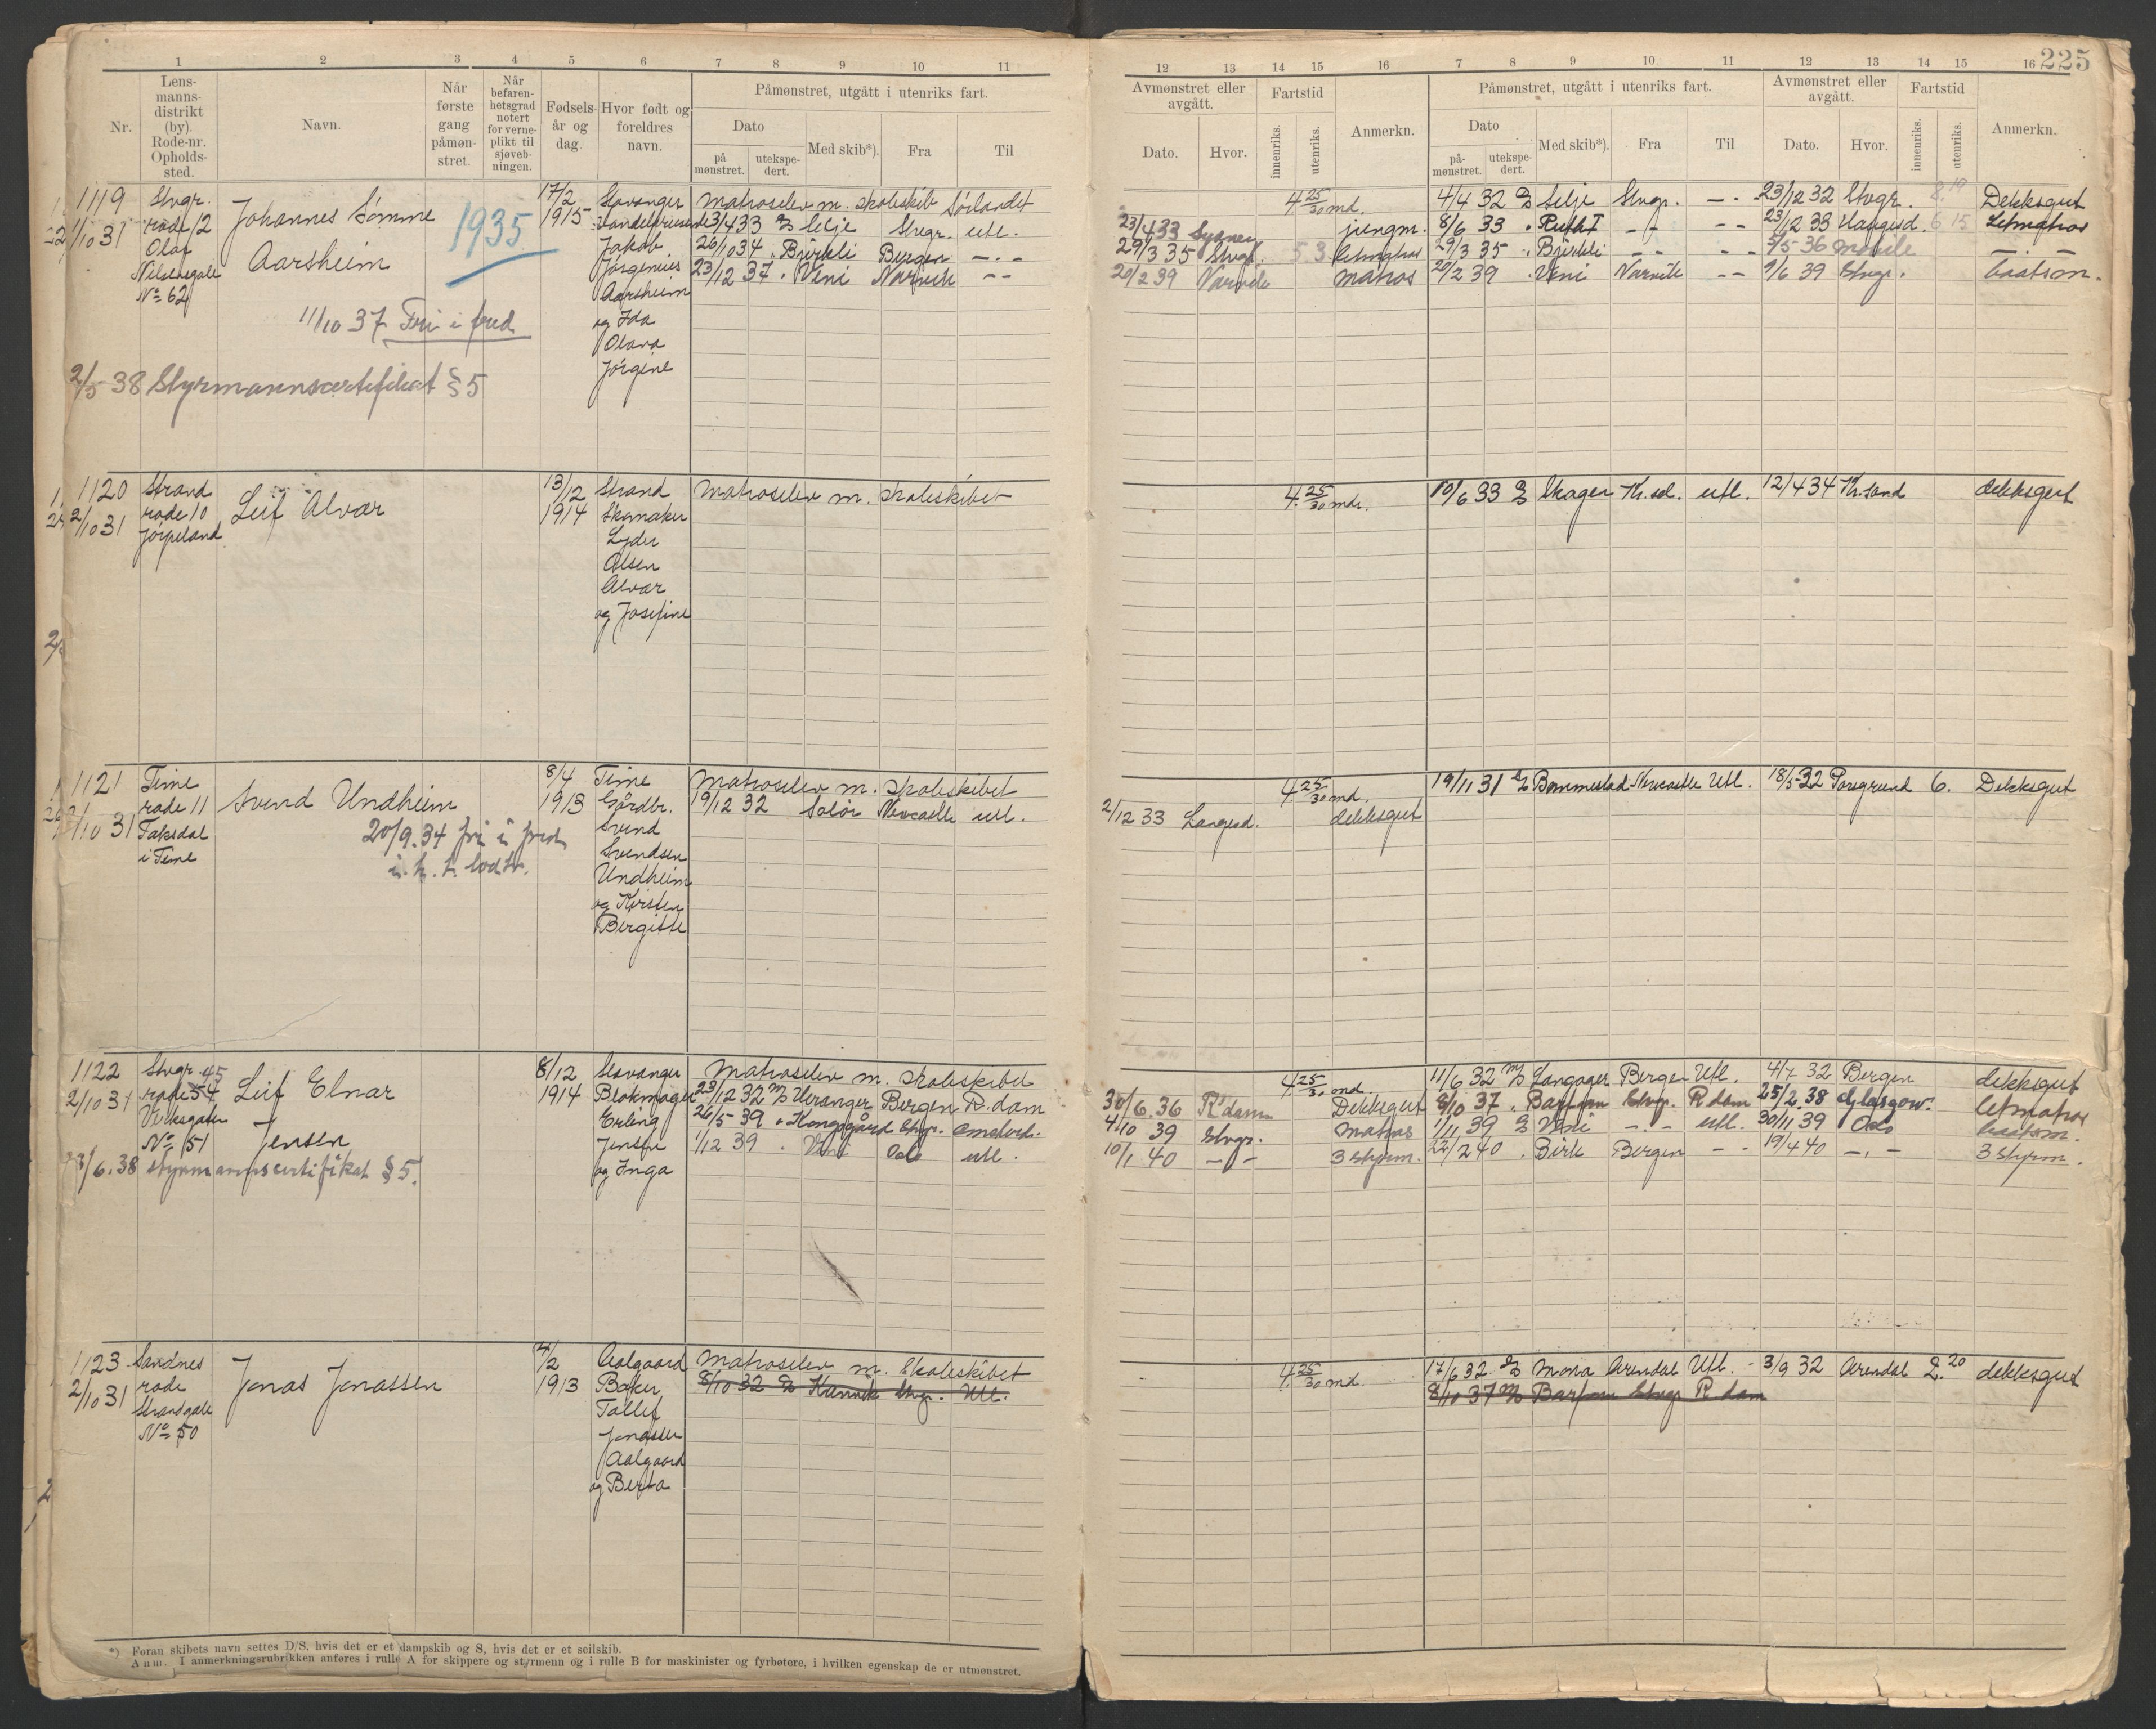 225
1 2 3 4 5 6 7 8 9 10 11
Nr.
Lens-
manns-
distrikt
(by).
Rode-nr.
Opholds-
sted.
Navn.
Når
første
gang
påmøn-
stret.
Når
befaren-
hetsgrad
notert
for verne-
plikt til
sjøveb-
ningen.
Fødsels-
år og
dag.
Hvor født og
foreldres
navn.
Påmønstret, utgått i utenriks fart.
Dato
på
mønstret.
utekspe-
dert.
Med skib*).
Fra
Til
12 13 14 15 16 7 8 9 10 11 12 13 14 15 16
Avmønstret eller
avgått.
Dato.
Hvor.
Fartstid
innenriks.
utenriks.
Anmerkn.
Påmønstret, utgått i utenriks fart.
Dato
på-
mønstret.
utekspe-
dert.
Med skib*).
Fra
Til
Avmønstret eller
avgått.
Dato.
Hvor.
Fartstid
innenriks.
utenriks.
Anmerkn.
1119
1/10 31
Stvgr.
rode 12
Olaf
Nilsensgate
No 62
Johannes Sømme
Aarsheim
1935
11/10 37 Fri i fred
2/5 38 Styrmannscertifikat § 5
17/2
1915
Stavanger
Jakob
Jørgenius
Aarsheim
og Ida
Olava
Jørgine
Matroselev m. skoleskib Sørlandet
3/4 33 Selje Stvgr. utl.
26/10 34 Bjørkli Bergen - . -
23/12 37 . Veni Narvik - -
4. 25/30 md.
23/4 33 Sydney jungm.
29/3 35 Stvgr. 5 3 letmatros
20/2 39 Narvik matros
4/4 32 Selje Stvgr. - . - 23/12 32 Stvgr. 8. 19 Dekksgut
8/6 33 - - - - 23/12 33 6 15 Letmatros
29/3 35 . Bjørkli - - - - 5/5 36 - -
20/2 39 . Veni Narvik - - 9/6 39 Stvgr. baatsm.
1120
2/10 31
Strand
rode 10
Jørpeland
Leif Alvar
13/12
1914
Strand
Skomaker
Lyder
Olsen
Alvar
og Josefine
Matroselev m. skoleskibet
4. 25/30 mdr.
10/6 33 Skager Kr.sd. utl. 12/4 34 Kr.sand dekksgut
1121
2/10 31
Time
rode 11
Taksdal
i Time
Svend Undheim
20/9.34 fri i fred
8/4
1913
Time
Gårdbr.
Svend
Svendsen
Undheim
og Kirsten
Bergitte
Matroselev m. skoleskibet
19/12 32 Solør Newcastle utl.
4. 25/30 md.
2/12 33 Langesd. dekksgut
19/11 31 Bommestad Newcastle Utl. 18/5 32 Porsgrund 6. Dekksgut
1122
2/10 31
Stvgr. 45
rode 54
Viksgaten
No 51
Leif Elnar
Jensen
23/6.38 styrmannscertifikat § 5.
8/12
1914
Stavanger
Blokmager
Erling
Jensen
og Inga
Matroselev m. skoleskibet
23/12 32 Veranger Bergen R.dam
26/5 39 . Kongsgård Stvgr. Amsterd.
1/12 39 . Veni Oslo utl.
4. 25/30 md.
30/6.36 R'dam Dekksgut
4/10 39 Stvgr. Matros
10/1 40 - - 3 styrm.
11/6 32 Langager Bergen Utl. 4/7 32 Bergen dekksgut
8/10 37 . Barfonn Stvgr. R dam 25/2.38 Glasgow. letmatros
1/11 39 Veni - . - utl. 30/11 39 Oslo baatsm.
22/2 40 . Birk Bergen - - 19/4 40 - . - 3 styrm.
1123
2/10 31
Sandnes
rode
Strandgate
No 50
Jonas Jonassen
4/2
1913
Aalgaard
Baker
Tollef
Jonassen
Aalgaard
og Berta
Matroselev m. Skoleskibet
8/10 32 Stvgr. Utl.
4. 25/30 md.
17/6 32 Mona Arendal Utl. - 3/9 32 Arendal 2. 20 dekksgut
8/10 37 Barfonn Stvgr R.dam
*) Foran skibets navn settes D/S, hvis det er et dampskib og S, hvis det er et seilskib.
Anm. I anmerkningsrubrikken anføres i rulle A for skippere og styrmenn og i rulle B for maskinister og fyrbøtere, i hvilken egenskap de er utmønstret.